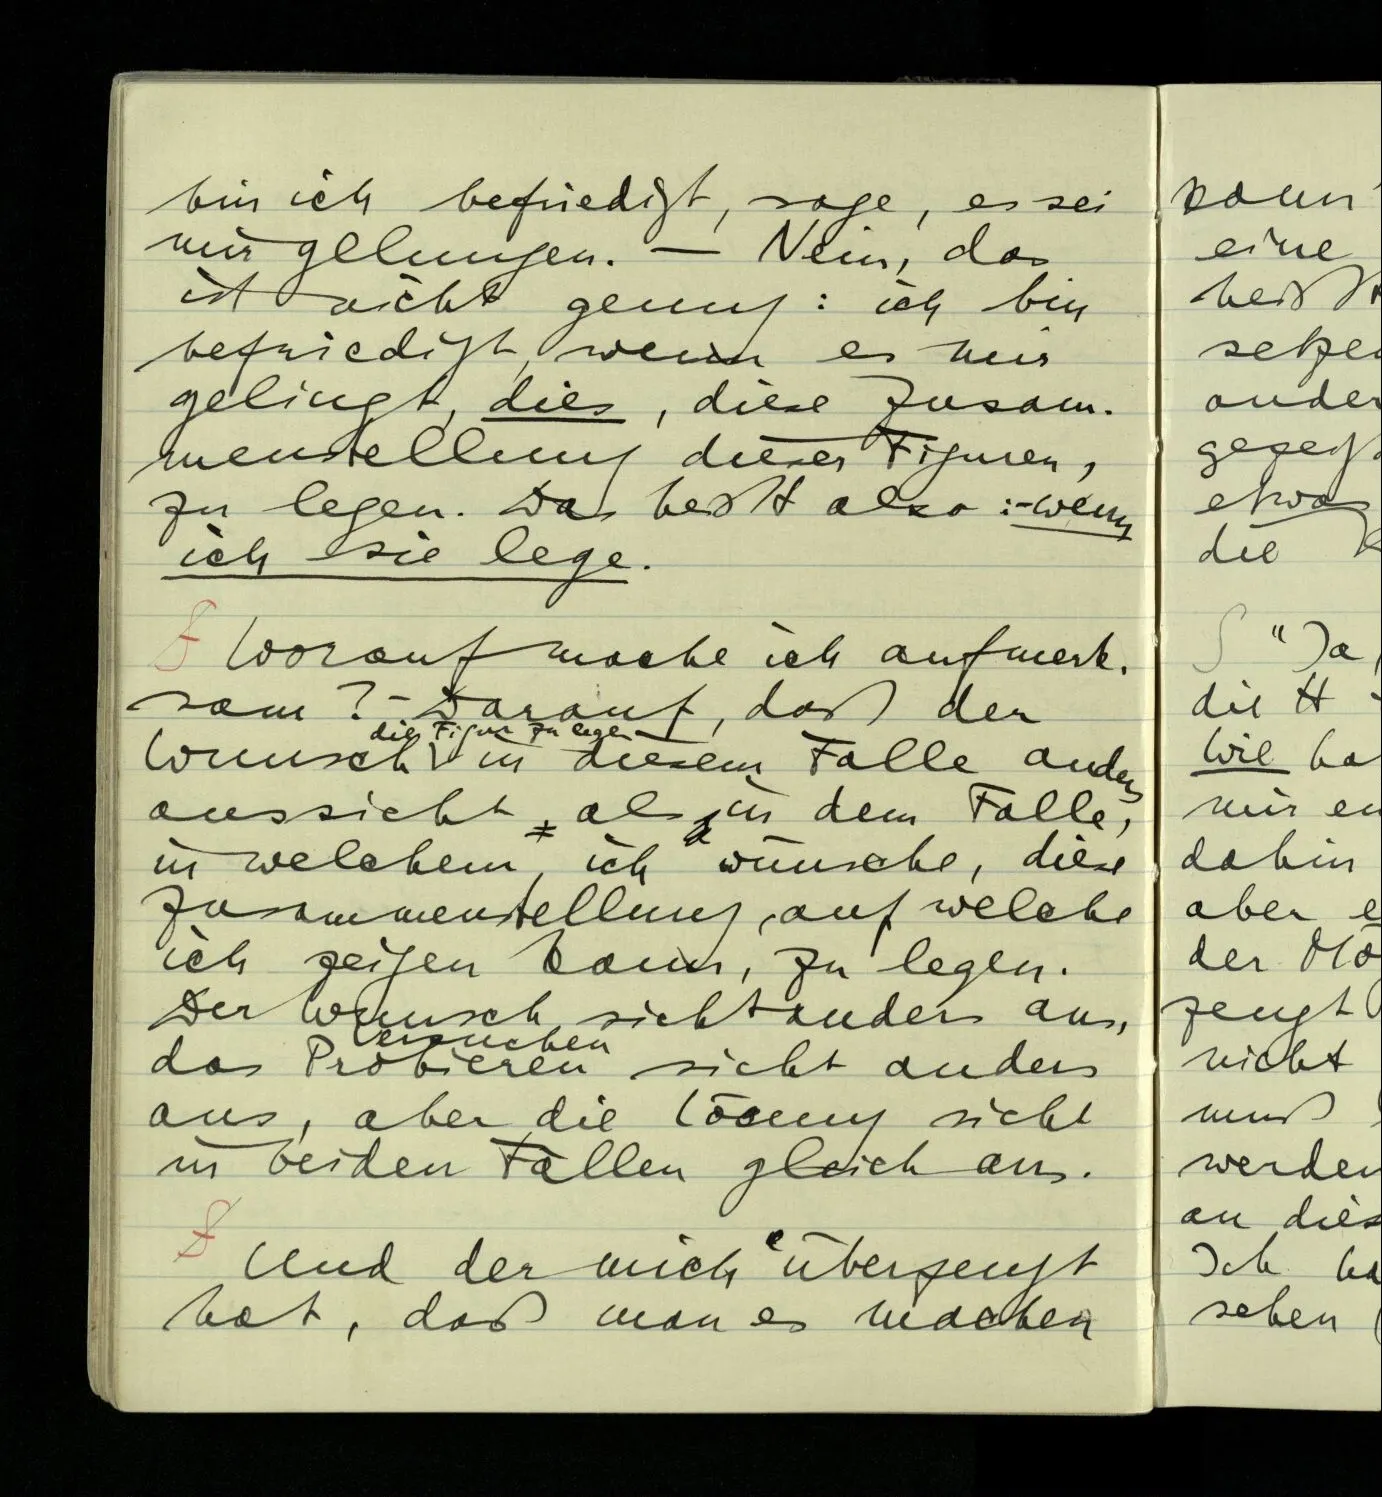 bin ich befriedigt, sage, es sei
mir gelungen. — Nein, das
ist nicht genug: ich bin
befriedigt, wenn es mir
gelingt, dies, diese Zusam-
menstellung dieser Figuren,
zu legen. Das heißt also: wenn
ich sie lege.
∫ Worauf mache ich aufmerk-
sam? – Darauf, daß der
die Figur zu legen
Wunsch in diesem Falle anders
aussieht, als in dem Falle,
in welchem ich wünsche, diese
Zusammenstellung, auf welche
ich zeigen kann, zu legen.
Der Wunsch sieht anders aus,
Versuchen
das Probieren sieht anders
aus, aber die Lösung sieht
in beiden Fällen gleich aus.
∫ Und der mich überzeugt
hat, daß man es machen
kann
eine
heißt
setzen
ander
etwas
die
∫ "Ja,
die H
Wie ha
mir en
dahin
aber e
der Mö
zeugt
nicht
muß
werden
an dies
Ich ha
sehen (